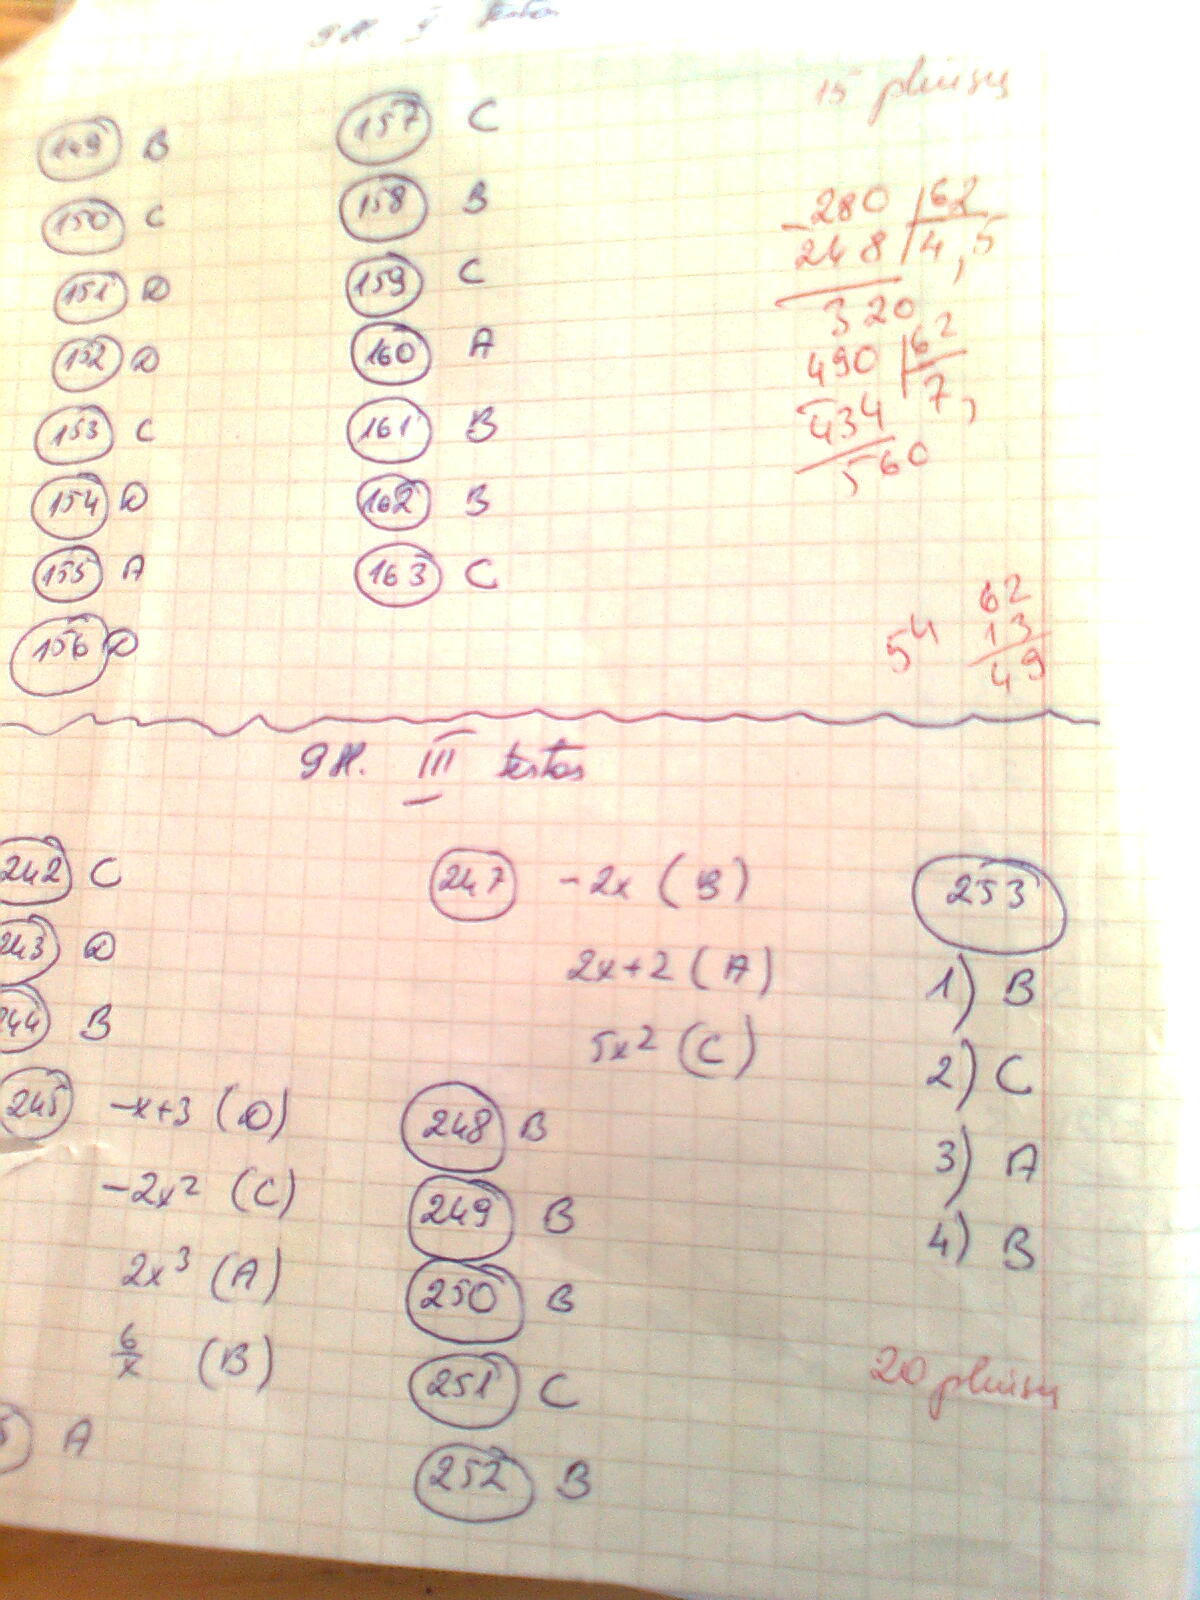 9 kl. I testas
15 pliusų
149 B
150 C
151 D
152 D
153 C
154 D
155 A
156 D
157 C
158 B
159 C
160 A
161 B
162 B
163 C
-280 | 62
248 | 4,5
320
490 | 62
434 | 7,
560
54
62
13
49
9 kl. III testas
242 C
243 D
244 B
245 -x+3 (D)
-2x² (C)
2x³ (A)
6/x (B)
A
247 -2x (B)
2x+2 (A)
5x² (C)
248 B
249 B
250 B
251 C
252 B
253
1) B
2) C
3) A
4) B
20 pliusų